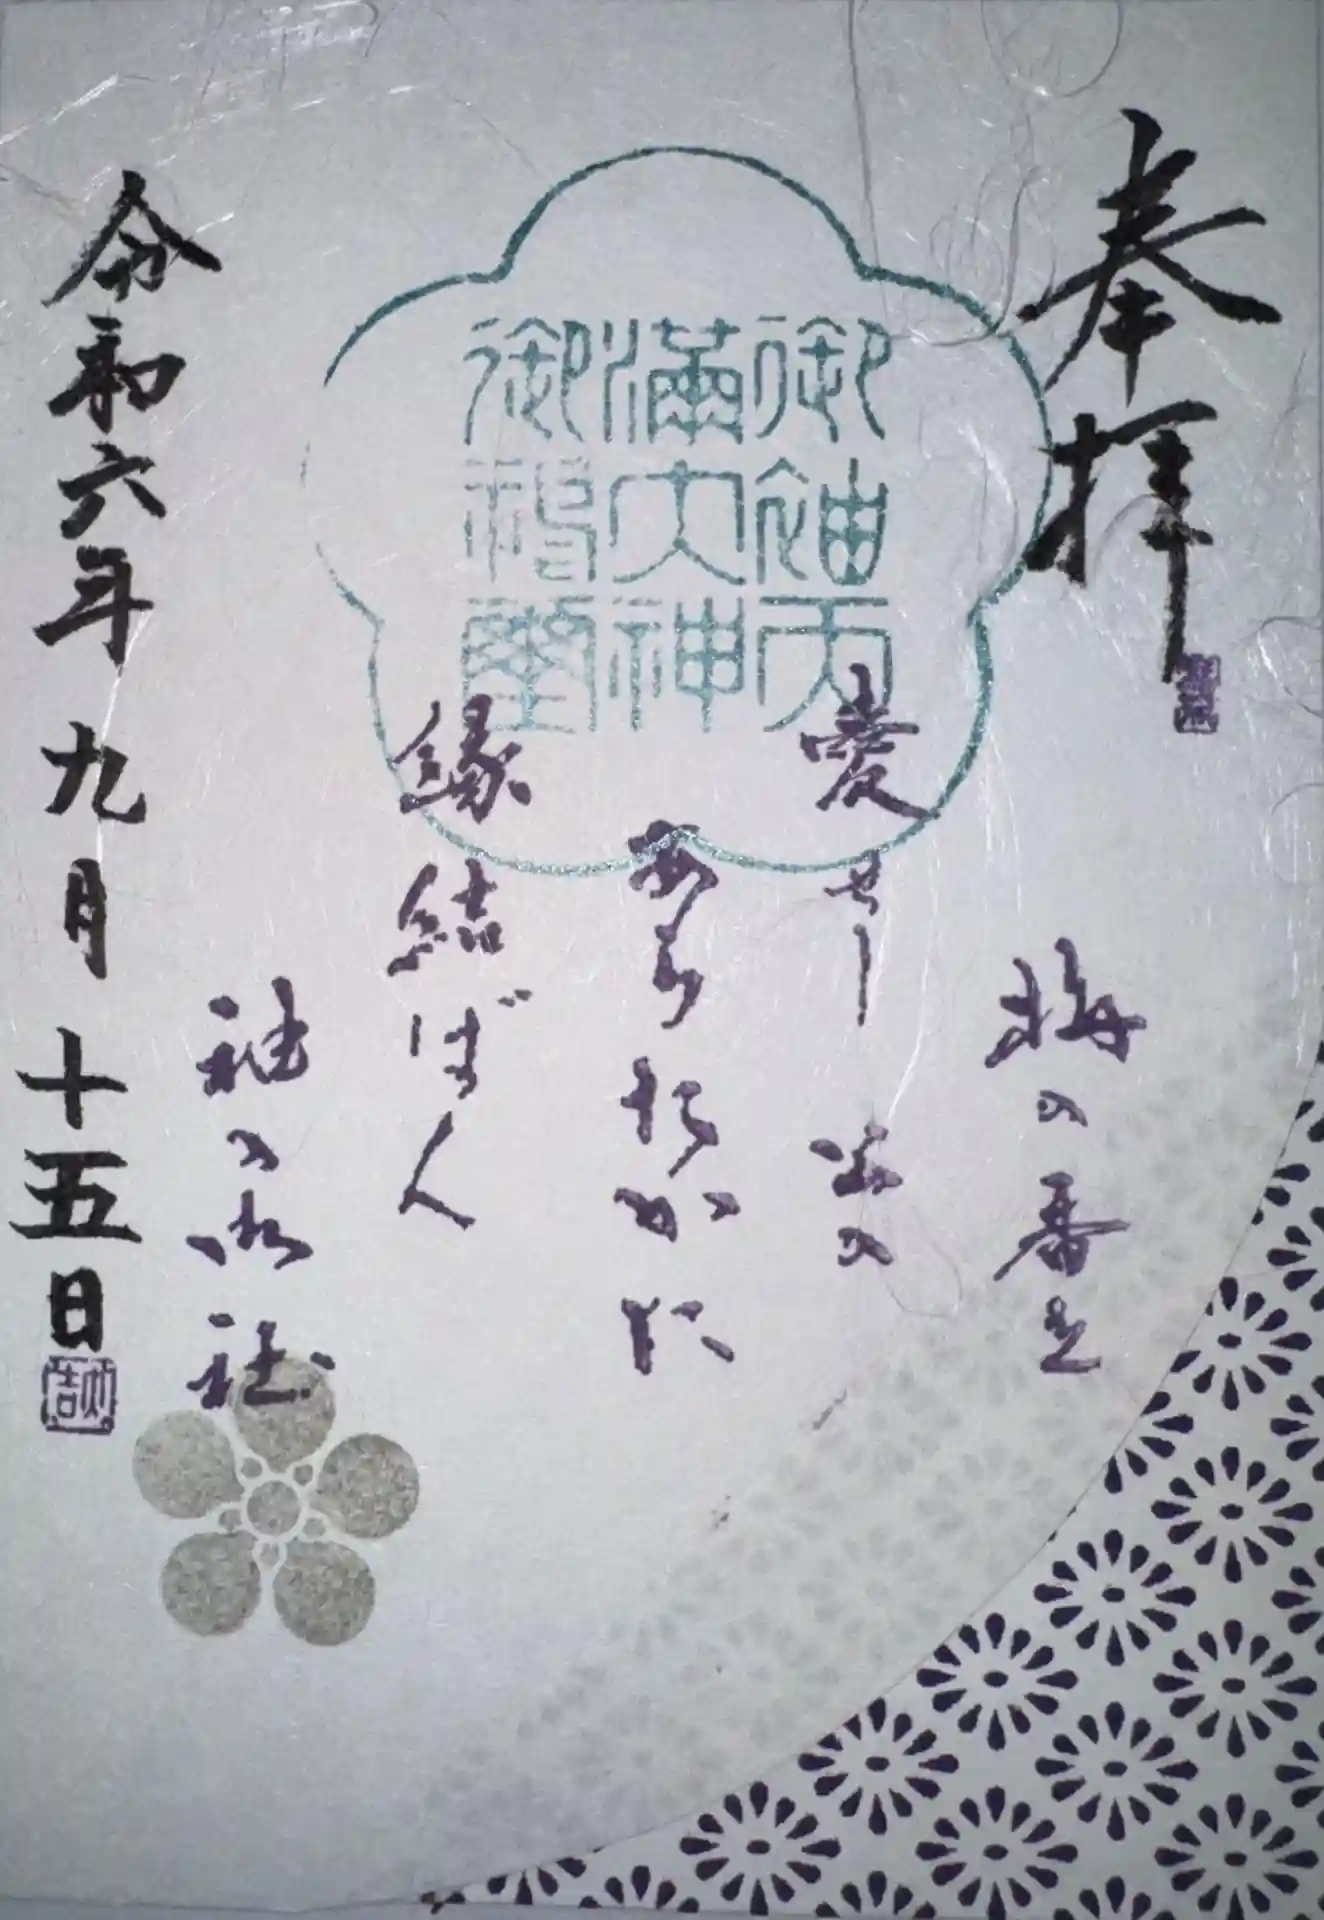 奉拝
梅の香を
愛せし公の
あらたかに
縁結ばん
袖の御社
御袖天
満大神
御神璽
令和六年九月十五日